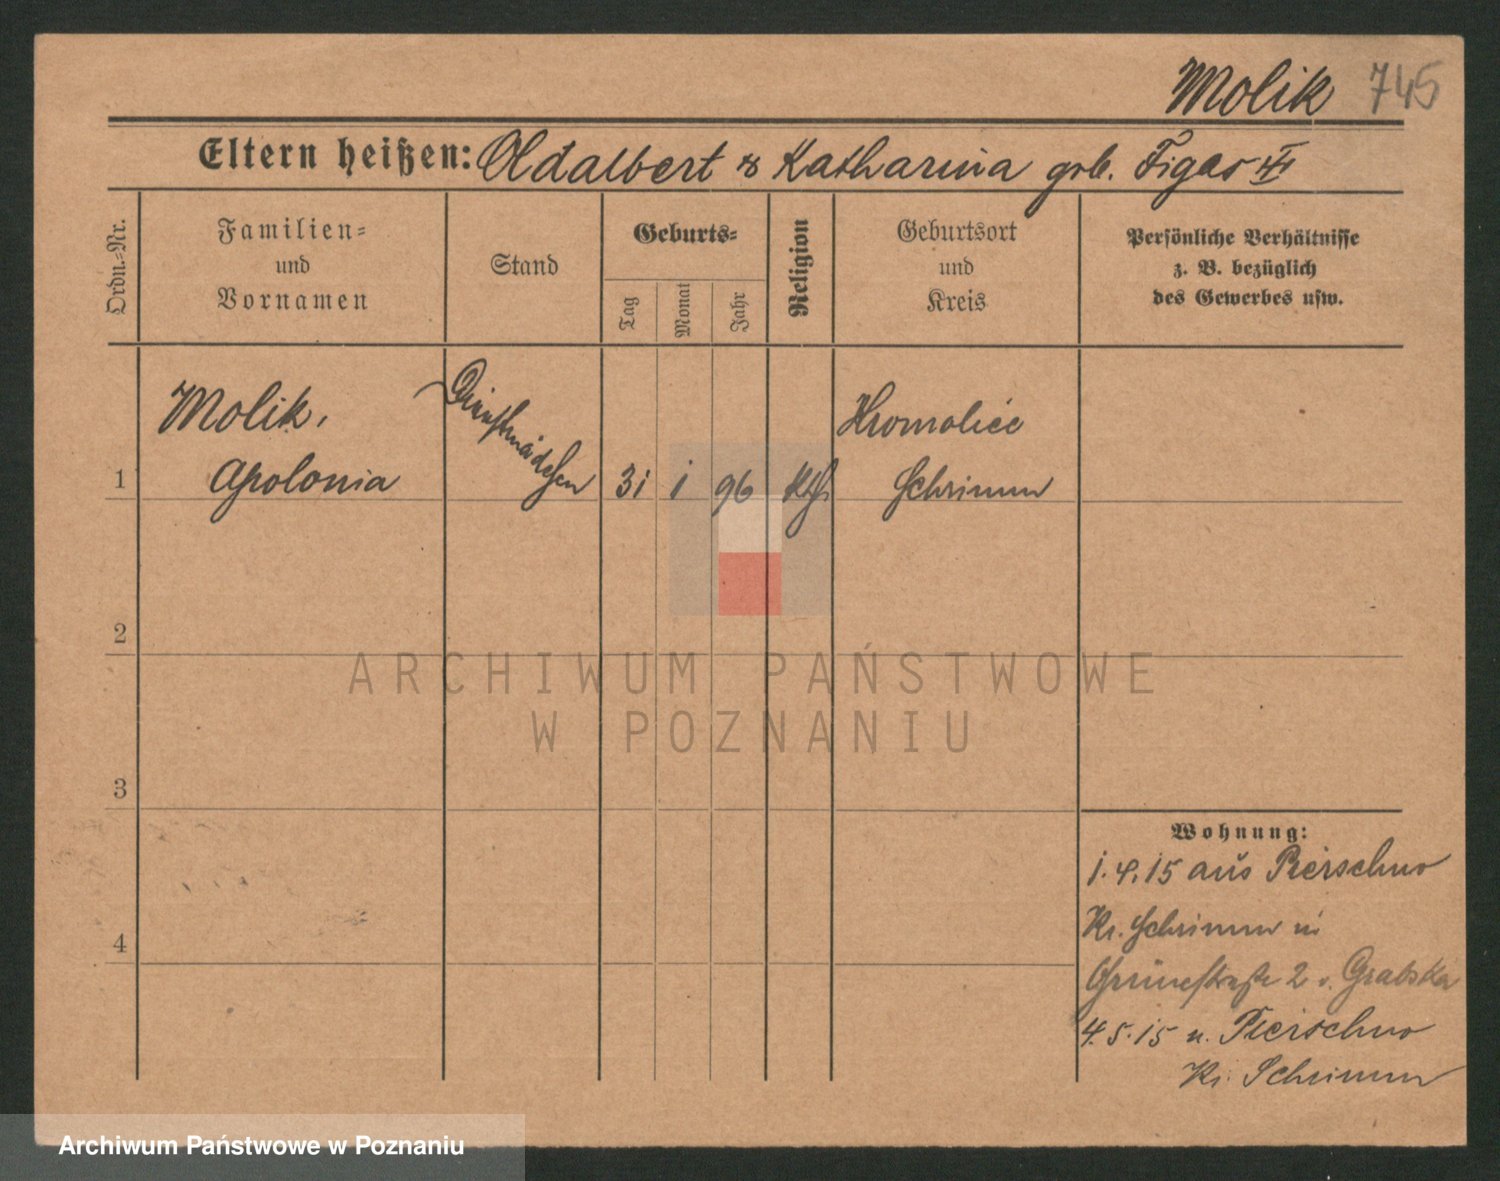 Molik 745
Eltern heißen: Adalbert & Katharina geb. Figas
Ordn.-Nr.
Familien-
und
Vornamen
Stand
Geburts-
Tag
Monat
Jahr
Religion
Geburtsort
und
Kreis
Persönliche Verhältnisse
z. B. bezüglich
des Gewerbes usw.
1
Molik,
Apolonia
Dienstmädchen
31
1
96
Kth
Hromolice
Schrimm
2
3
4
ARCHIWUM PAŃSTWOWE
W POZNANIU
Wohnung:
1.4.15 aus Pierschno
Kr. Schrimm in
Grünestraße 2 v. Grabska
4.5.15 n. Pierschno
Kr. Schrimm
Archiwum Państwowe w Poznaniu